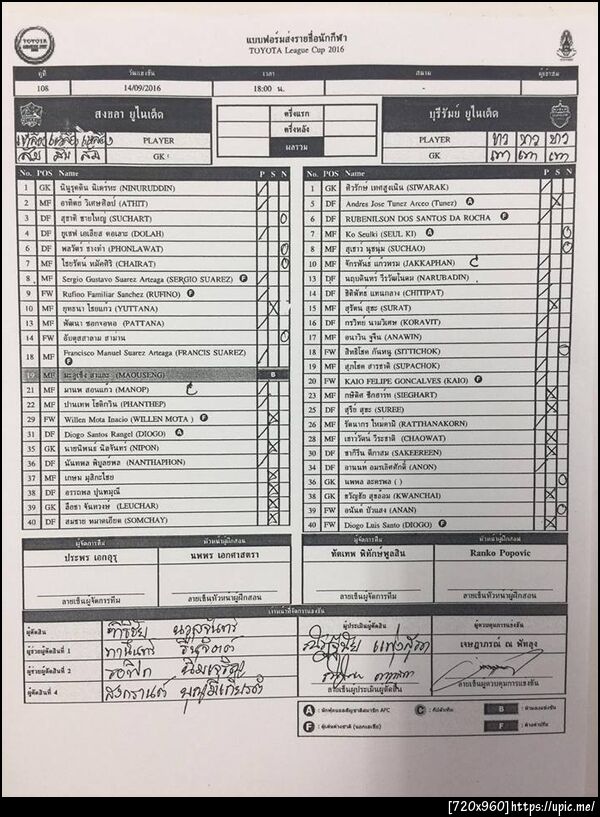 TOYOTA
แบบฟอร์มส่งรายชื่อนักกีฬา
TOYOTA League Cup 2016
คู่ที่ วันแข่งขัน เวลา สนาม ผู้เข้าชม
108 14/09/2016 18:00 น. -
สงขลา ยูไนเต็ด ครึ่งแรก บุรีรัมย์ ยูไนเต็ด
ครึ่งหลัง
ผลรวม
เหลือง เหลือง เหลือง PLAYER
ส้ม ส้ม ส้ม GK :
PLAYER ขาว ขาว ขาว
GK เทา เทา เทา
No. POS Name P S N
1 GK นินูรุดดีน นิเดร์หะ (NINURUDDIN)
2 MF อาทิตย์ วิเศษศิลป์ (ATHIT)
3 DF สุชาติ ชายใหญ่ (SUCHART)
4 DF ยูเซฟ เอเลียส ดอเลาะ (DOLAH)
6 DF พลวัตร ช่างทำ (PHONLAWAT)
7 DF ไชยรัตน์ หมัดศิริ (CHAIRAT)
8 MF Sergio Gustavo Suarez Arteaga (SERGIO SUAREZ) F
9 FW Rufino Familiar Sanchez (RUFINO) F
10 MF ยุทธนา ไชยแก้ว (YUTTANA)
13 MF พัฒนา ซอกจอหอ (PATTANA)
14 FW อับดุสสาลาม สามาน
18 MF Francisco Manuel Suarez Arteaga (FRANCIS SUAREZ) F
19 MF มะอูเซ็ง สาและ (MAOUSENG) B
21 MF มานพ สอนแก้ว (MANOP) C
22 MF ปานเทพ โชติกวิน (PHANTHEP)
29 FW Willen Mota Inacio (WILLEN MOTA ) F
31 DF Diogo Santos Rangel (DIOGO) A
35 GK นายนิพนธ์ นิลจันทร์ (NIPON)
36 DF นันทพล พิบูลย์พล (NANTHAPHON)
37 MF เกษม มุสิกะไชย
38 DF อรรถพล ปุนทมุณี
39 GK ลือชา จันทวงษ์ (LEUCHAR)
40 DF สมชาย หมาดเอียด (SOMCHAY)
No. POS Name P S N
1 GK ศิวรักษ์ เทศสูงเนิน (SIWARAK)
5 DF Andres Jose Tunez Arceo (Tunez) A
6 DF RUBENILSON DOS SANTOS DA ROCHA F
7 MF Ko Seulki (SEUL KI) A
8 MF สุเชาว์ นุชนุ่ม (SUCHAO)
10 MF จักรพันธ์ แก้วพรม (JAKKAPHAN) C
13 DF นฤบดินทร์ วีรวัฒโนดม (NARUBADIN)
14 DF ชิติพัทธ์ แทนกลาง (CHITIPAT)
15 MF สุรัตน์ สุขะ (SURAT)
16 DF กรวิทย์ นามวิเศษ (KORAVIT)
17 MF อนาวิน จูจีน (ANAWIN)
18 FW สิทธิโชค กันหนู (SITTICHOK)
19 MF สุภโชค สารชาติ (SUPACHOK)
20 FW KAIO FELIPE GONCALVES (KAIO) F
23 MF (SIEGHART)
25 DF สุรีย์ สุขะ (SUREE)
26 MF รัตนากร ใหม่คามิ (RATTHANAKORN)
28 MF เชาว์วัฒน์ วีระชาติ (CHAOWAT)
30 DF ชากีรีน ดีกาสม (SAKEEREEN)
34 DF อานนท์ อมรเลิศศักดิ์ (ANON)
36 GK นพพล ละครพล ( )
38 GK ขวัญชัย สุขล้อม (KWANCHAI)
39 FW อนันต์ บัวแสง (ANAN)
40 FW Diogo Luis Santo (DIOGO) F
ผู้จัดการทีม หัวหน้าผู้ฝึกสอน ผู้จัดการทีม หัวหน้าผู้ฝึกสอน
ประพร เอกอุรุ นพพร เอกศาสตรา ทัดเทพ พิทักษ์พูลสิน Ranko Popovic
ลายเซ็นผู้จัดการทีม ลายเซ็นหัวหน้าผู้ฝึกสอน ลายเซ็นผู้จัดการทีม ลายเซ็นหัวหน้าผู้ฝึกสอน
เจ้าหน้าที่จัดการแข่งขัน
ผู้ตัดสิน
ผู้ช่วยผู้ตัดสินที่ 1
ผู้ช่วยผู้ตัดสินที่ 2
ผู้ตัดสินที่ 4 สงกรานต์ บุญมีเกียรติ
ผู้ประเมินผู้ตัดสิน
ลายเซ็นผู้ประเมินผู้ตัดสิน
ผู้ควบคุมการแข่งขัน
เจษฎาภรณ์ ณ พัทลุง
ลายเซ็นผู้ควบคุมการแข่งขัน
A : นักฟุตบอลสัญชาติสมาชิก AFC C : กัปตันทีม B : ห้ามลงแข่งขัน
F : ผู้เล่นต่างชาติ (นอกเอเชีย) F
[720x960]https://upic.me/